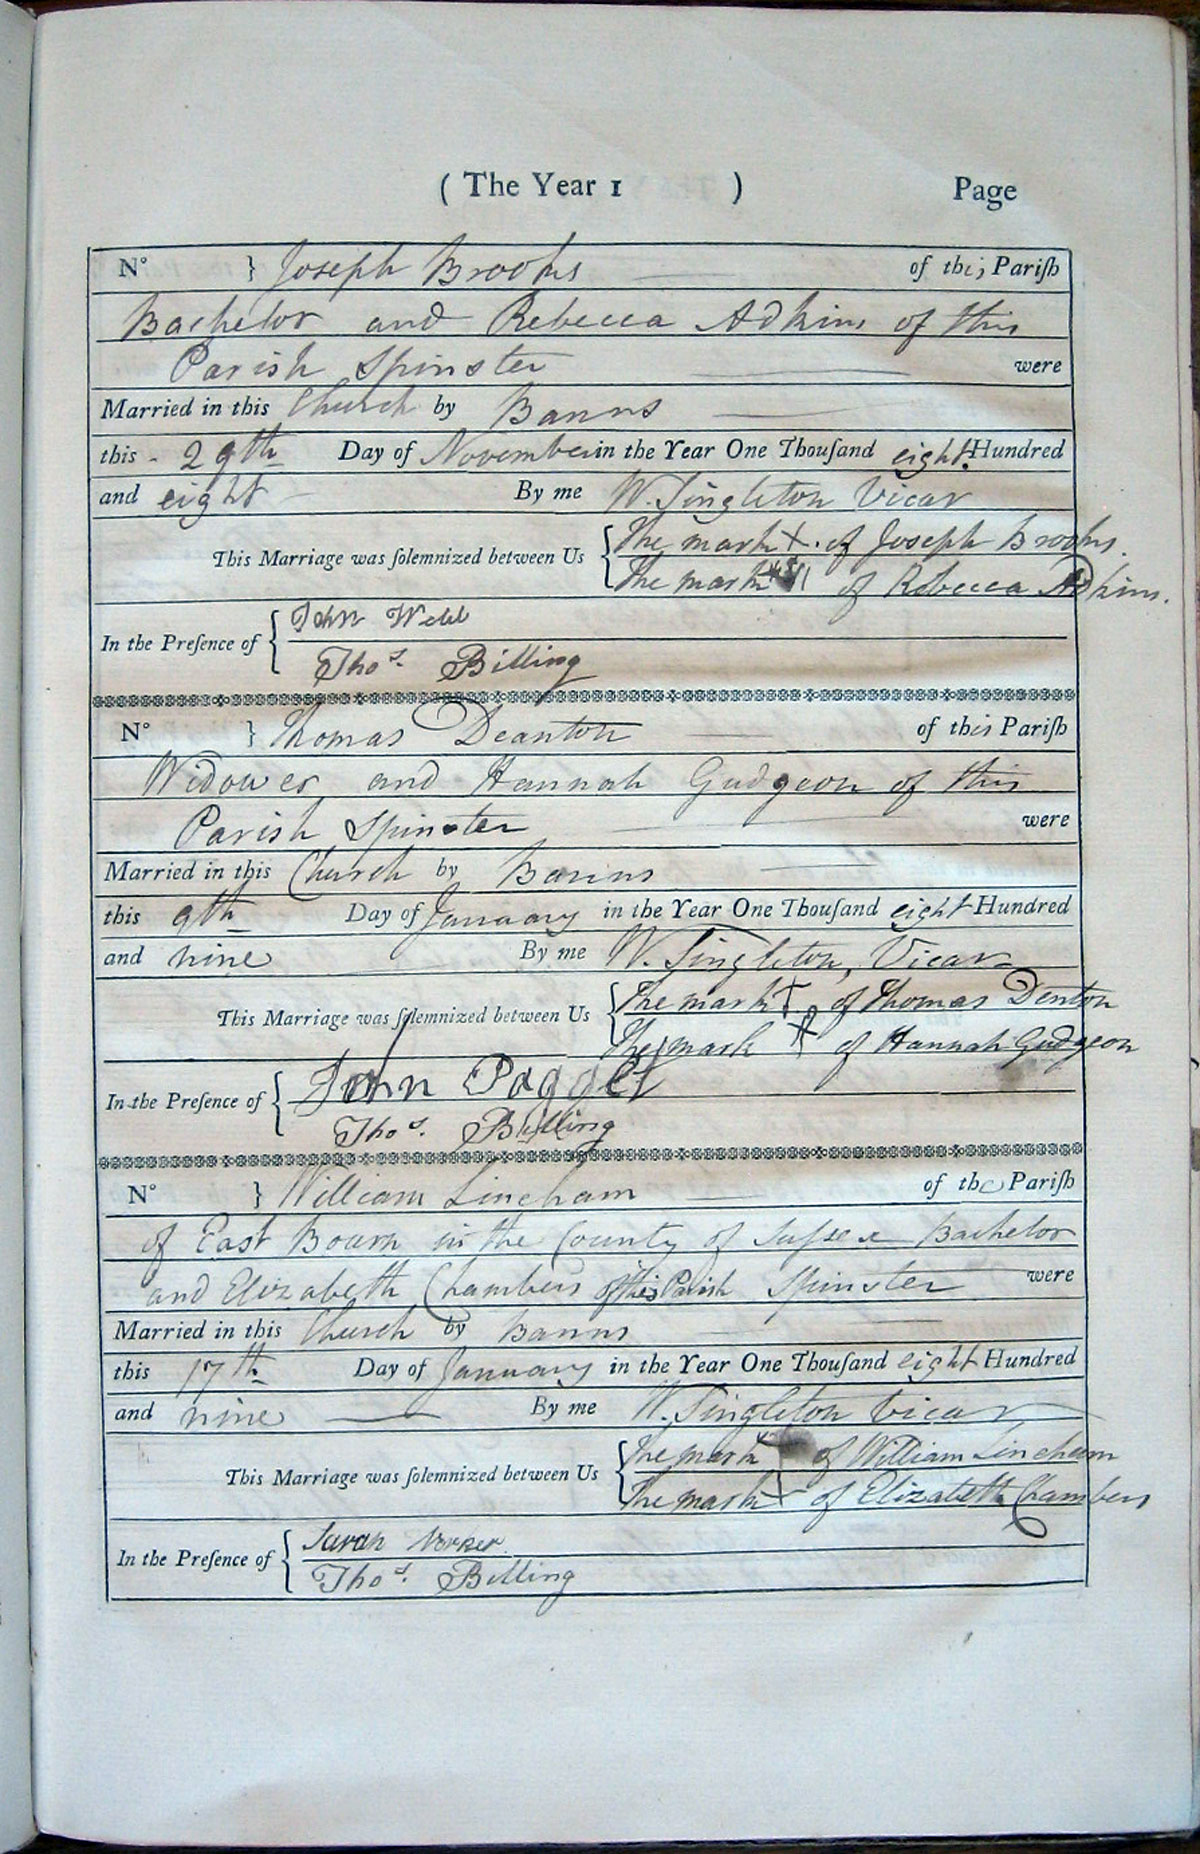 ( The Year 1 ) Page
N° } Joseph Brooks of this Pariſh
Bachelor and Rebecca Adkins of this
Parish Spinster were
Married in this Church by Banns
this 29th Day of November in the Year One Thouſand eight Hundred
and eight By me W. Singleton Vicar
This Marriage was ſolemnized between Us { The mark X of Joseph Brooks.
The mark of Rebecca Adkins.
In the Preſence of { John Webb
Thos. Billing
N° } Thomas Deanton of this Pariſh
Widower and Hannah Gudgeon of this
Parish Spinster were
Married in this Church by Banns
this 9th Day of January in the Year One Thouſand eight Hundred
and nine By me W. Singleton, Vicar
This Marriage was ſolemnized between Us { The mark X of Thomas Denton
The mark X of Hannah Gudgeon
In the Preſence of { John Pagget
Thos. Billing
N° } William Lincham of the Pariſh
of East Bourn in the County of Sussex Bachelor
and Elizabeth Chambers of this Parish Spinster were
Married in this Church by Banns
this 17th Day of January in the Year One Thouſand eight Hundred
and nine By me W. Singleton Vicar
This Marriage was ſolemnized between Us { The mark of William Lincham
The mark X of Elizabeth Chambers
In the Preſence of { Sarah
Thos. Billing